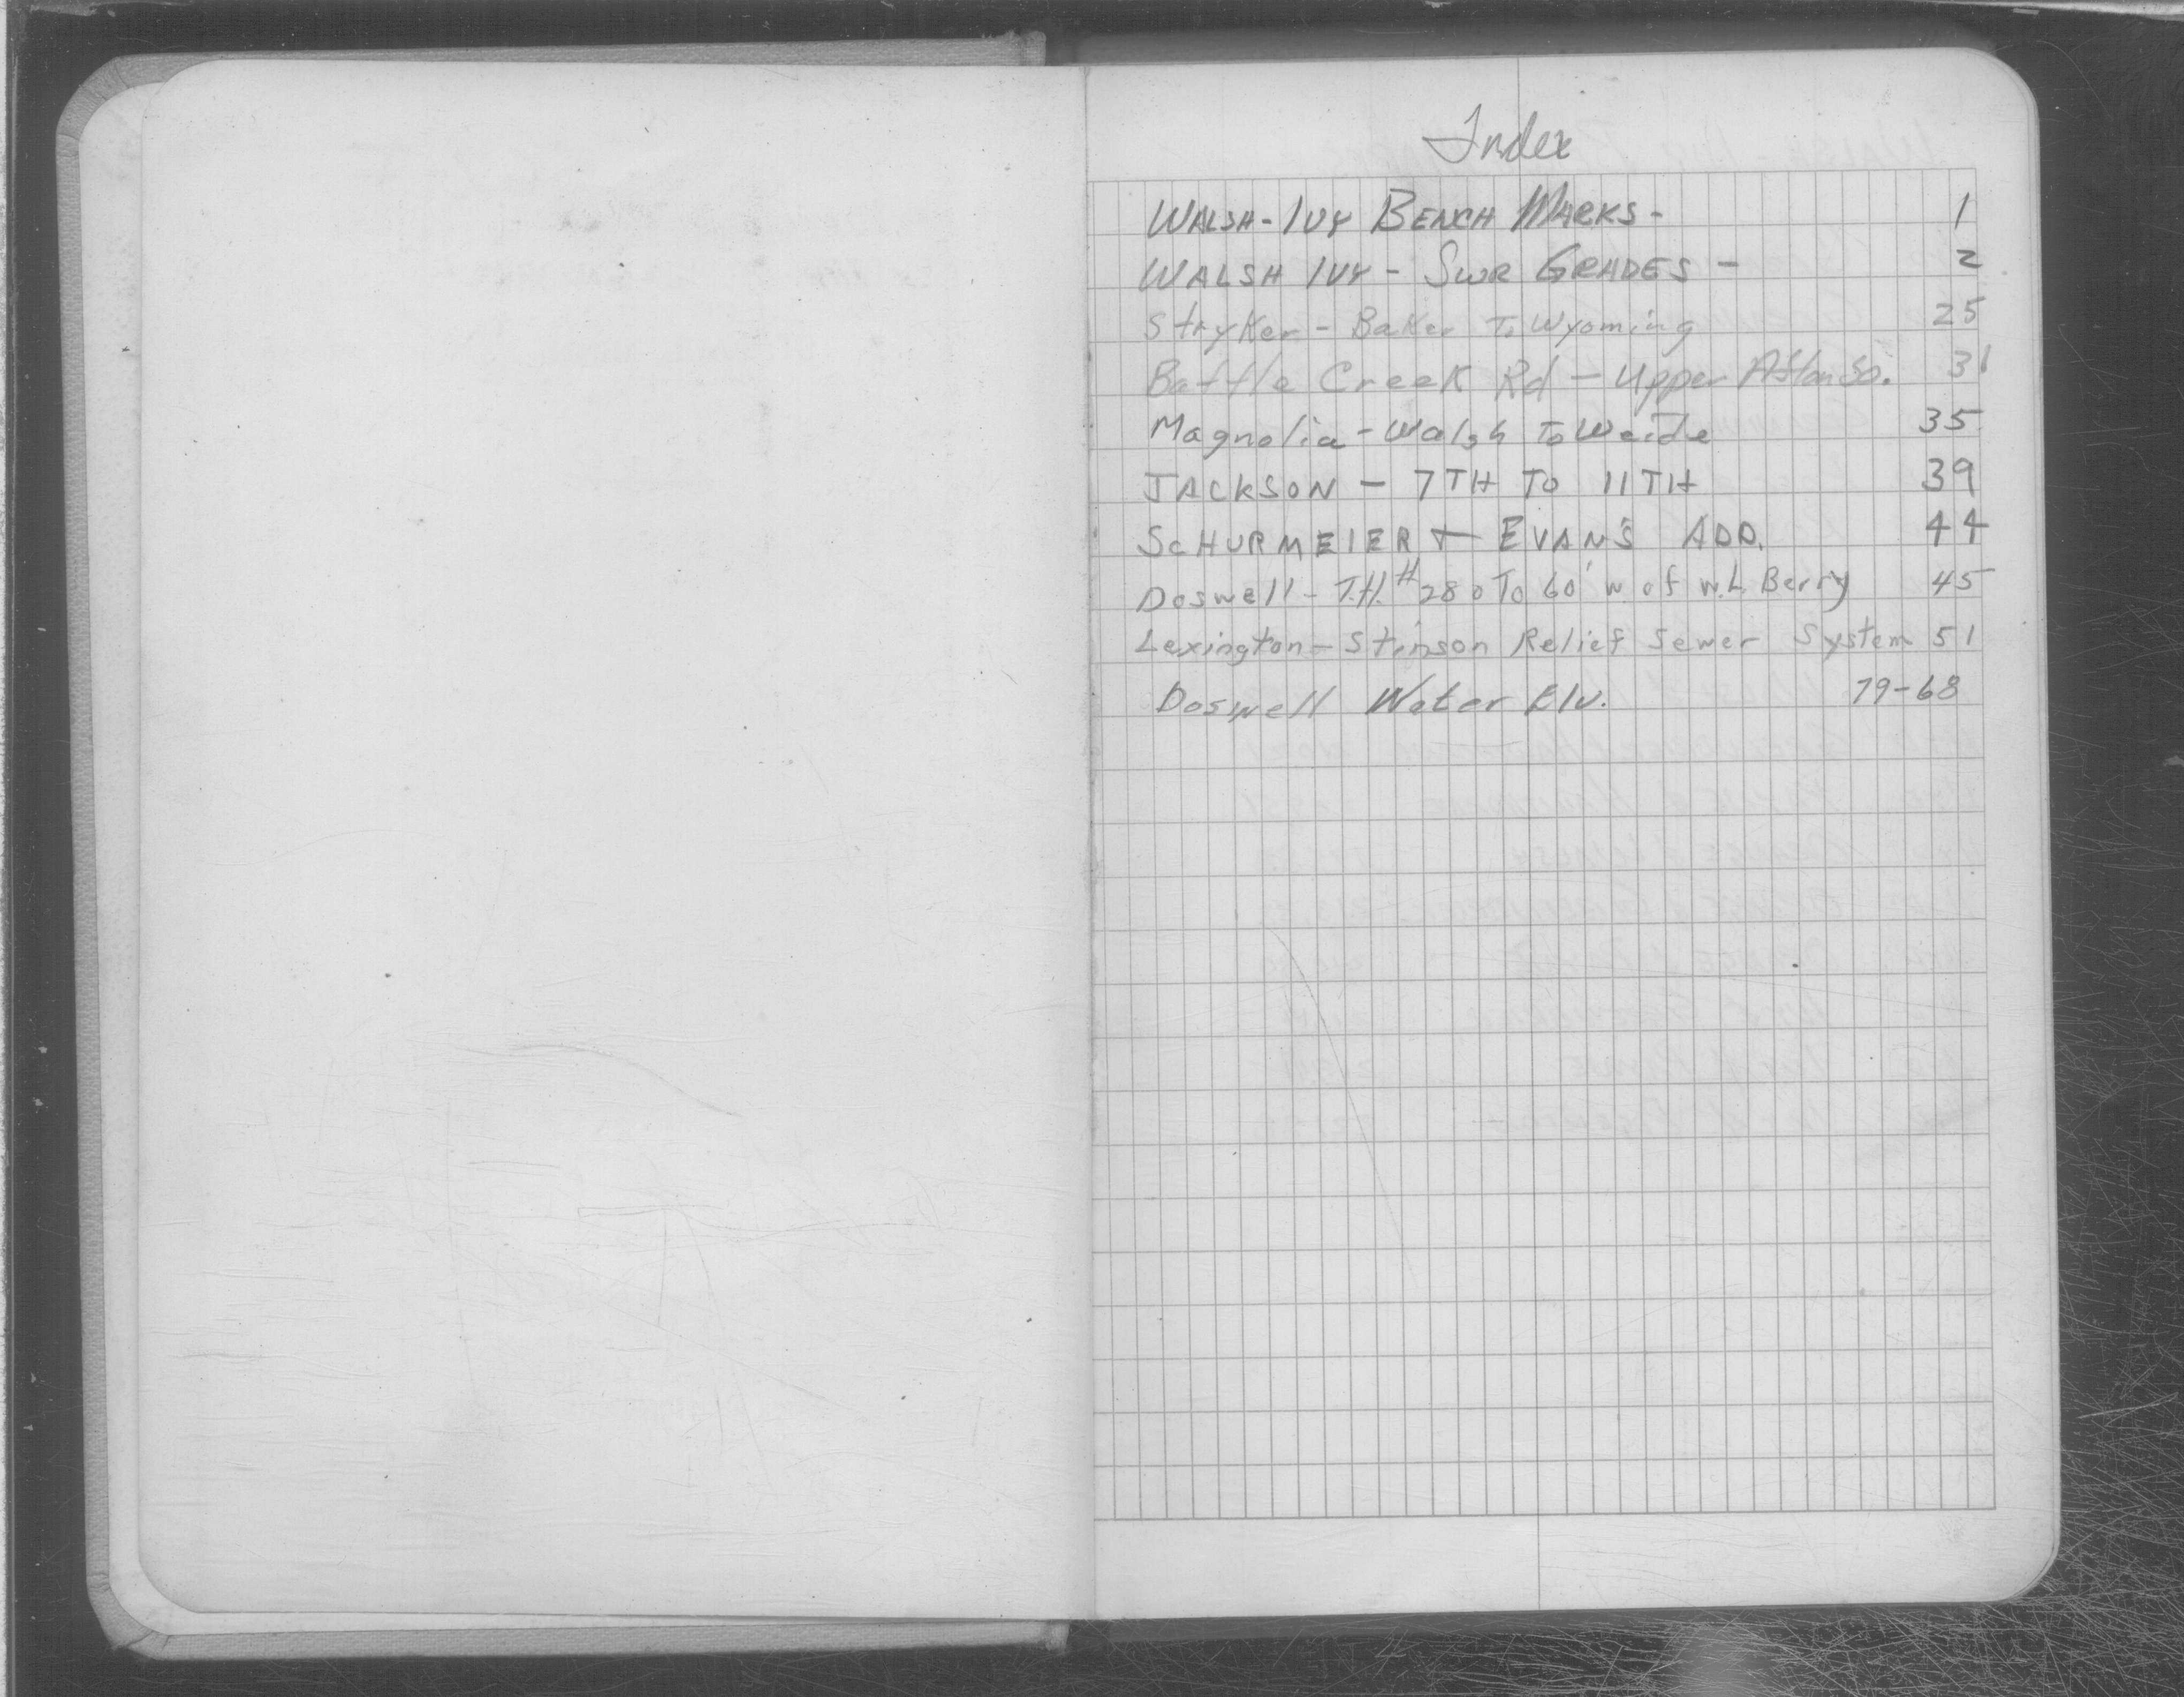 Index
WALSH - IVY BENCH MARKS - 1
WALSH IVY - SWR GRADES - 2
Stryker - Baker To Wyoming 25
Battle Creek Rd - Upper Afton So. 31
Magnolia - Walsh To Weide 35
JACKSON - 7TH TO 11TH 39
SCHURMEIER + EVAN'S ADD. 44
Doswell - T.H. # 280 To 60' w. of w.L. Berry 45
Lexington - Stinson Relief Sewer System 51
Doswell Water Elv. 79-68